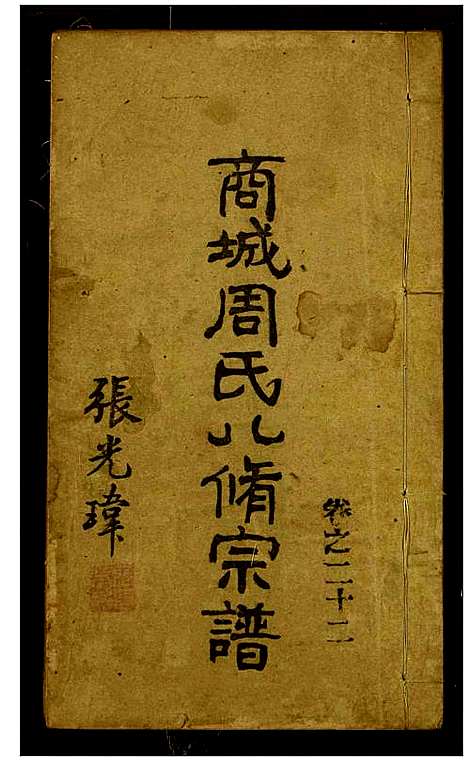 卷之二十二
商城周氏八脩宗譜
張光瑋